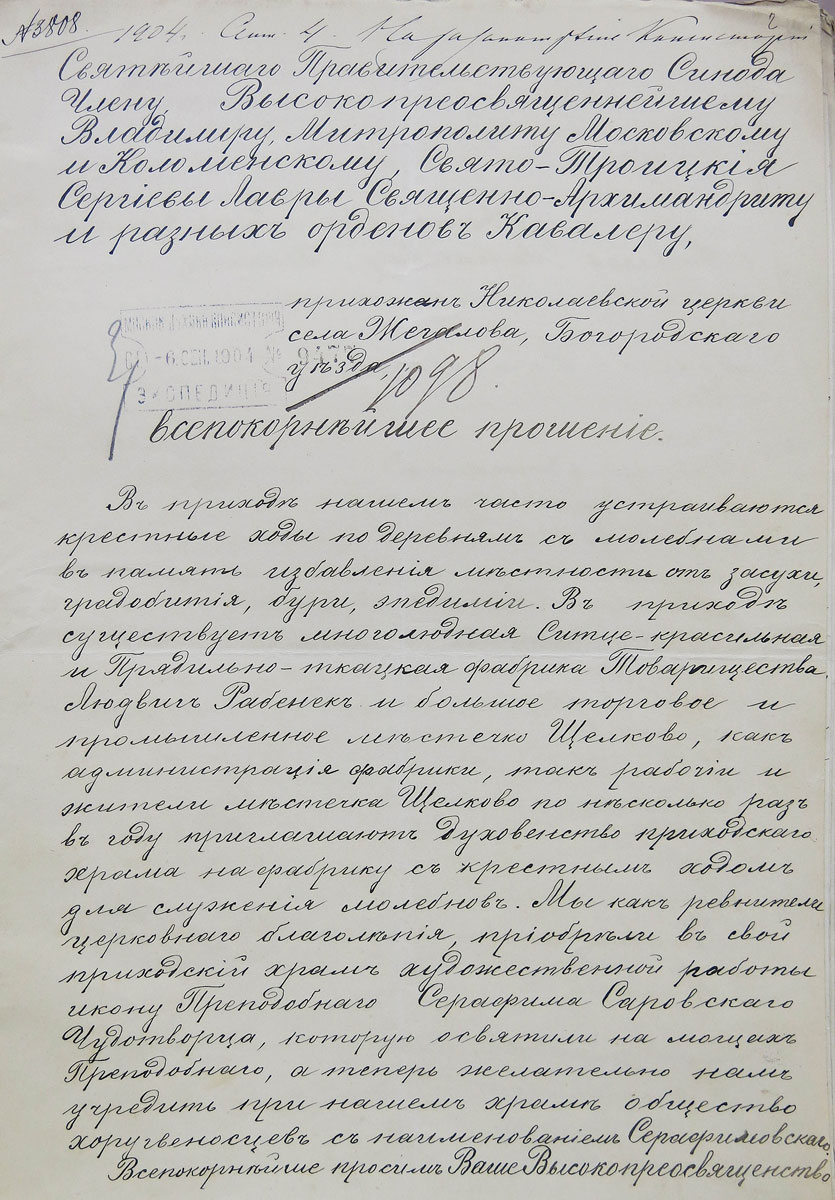 №3808. 1904. Сент. 4. На разсмотрѣніе Консисторіи
Святѣйшаго Правительствующаго Синода
Члену, Высокопреосвященнейшему
Владимиру, Митрополиту Московскому
и Коломенскому, Свято-Троицкія
Сергіевы Лавры Священно-Архимандриту
и разныхъ орденовъ Кавалеру,
прихожанъ Николаевской церкви
села Жегалова, Богородскаго
уѣзда,
1098.
ЭКСПЕДИЦІЯ
всепокорнѣйшее прошеніе.
Въ приходѣ нашемъ часто устраиваются
крестные ходы по деревнямъ съ молебнами
въ память избавленія мѣстности отъ засухи,
градобитія, бури, эпедиміи. Въ приходѣ
существуетъ многолюдная Ситце-красильная
и Прядильно-ткацкая фабрика Товарищества
Людвигъ Рабенекъ и большое торговое и
промышленное мѣстечко Щелково, какъ
администрація фабрики, такъ рабочіи и
жители мѣстечка Щелково по нѣсколько разъ
въ году приглашаютъ духовенство приходскаго
храма на фабрику съ крестнымъ ходомъ
для служенія молебновъ. Мы какъ ревнители
церковнаго благолѣпія, пріобрѣли въ свой
приходскій храмъ художественной работы
икону Преподобнаго Серафима Саровскаго
Чудотворца, которую освятили на мощахъ
Преподобнаго, а теперь желательно намъ
учредить при нашемъ храмѣ общество
хоругвеносцевъ съ наименованіемъ Серафимовскаго.
Всепокорнѣйше просимъ Ваше Высокопреосвященство